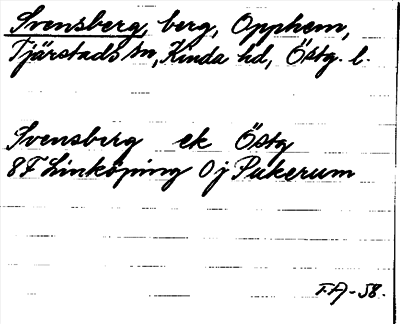 Svensberg, berg, Opphem,
Tjärstads sn, Kinda hd, Östg. l.
Svensberg ek Östg
8F Linköping 0j Pukerum
FA-58.